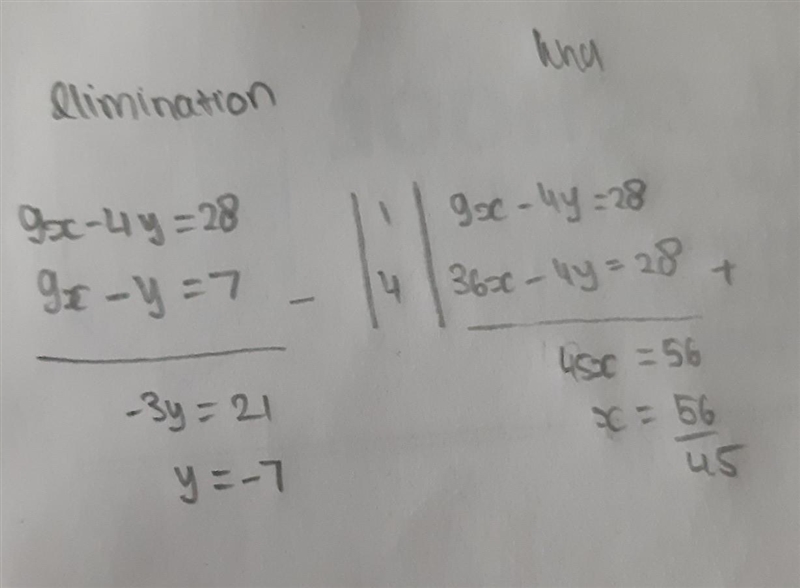 elimination
9x-4y=28
9x-y=7 -
-3y=21
y=-7
| 1 | 9x-4y=28
| 4 | 36x-4y=28 +
45x=56
x=56/45